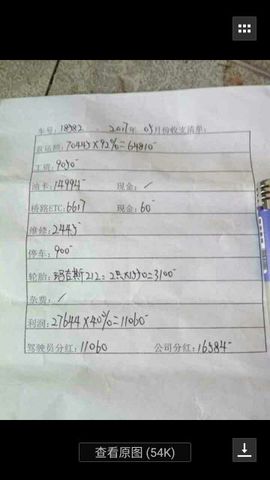 车号: 18982 2017年 05月份收支清单:
70445×92%=64810-
工资: 9050-
油卡: 14994- 现金: /
桥路ETC: 6617 现金: 60-
维修: 2445-
停车: 900-
轮胎: 212: 2只×1550=3100-
杂费: /
利润: 27644×40%=11060-
驾驶员分红: 11060 公司分红: 16584-
查看原图 (54K)